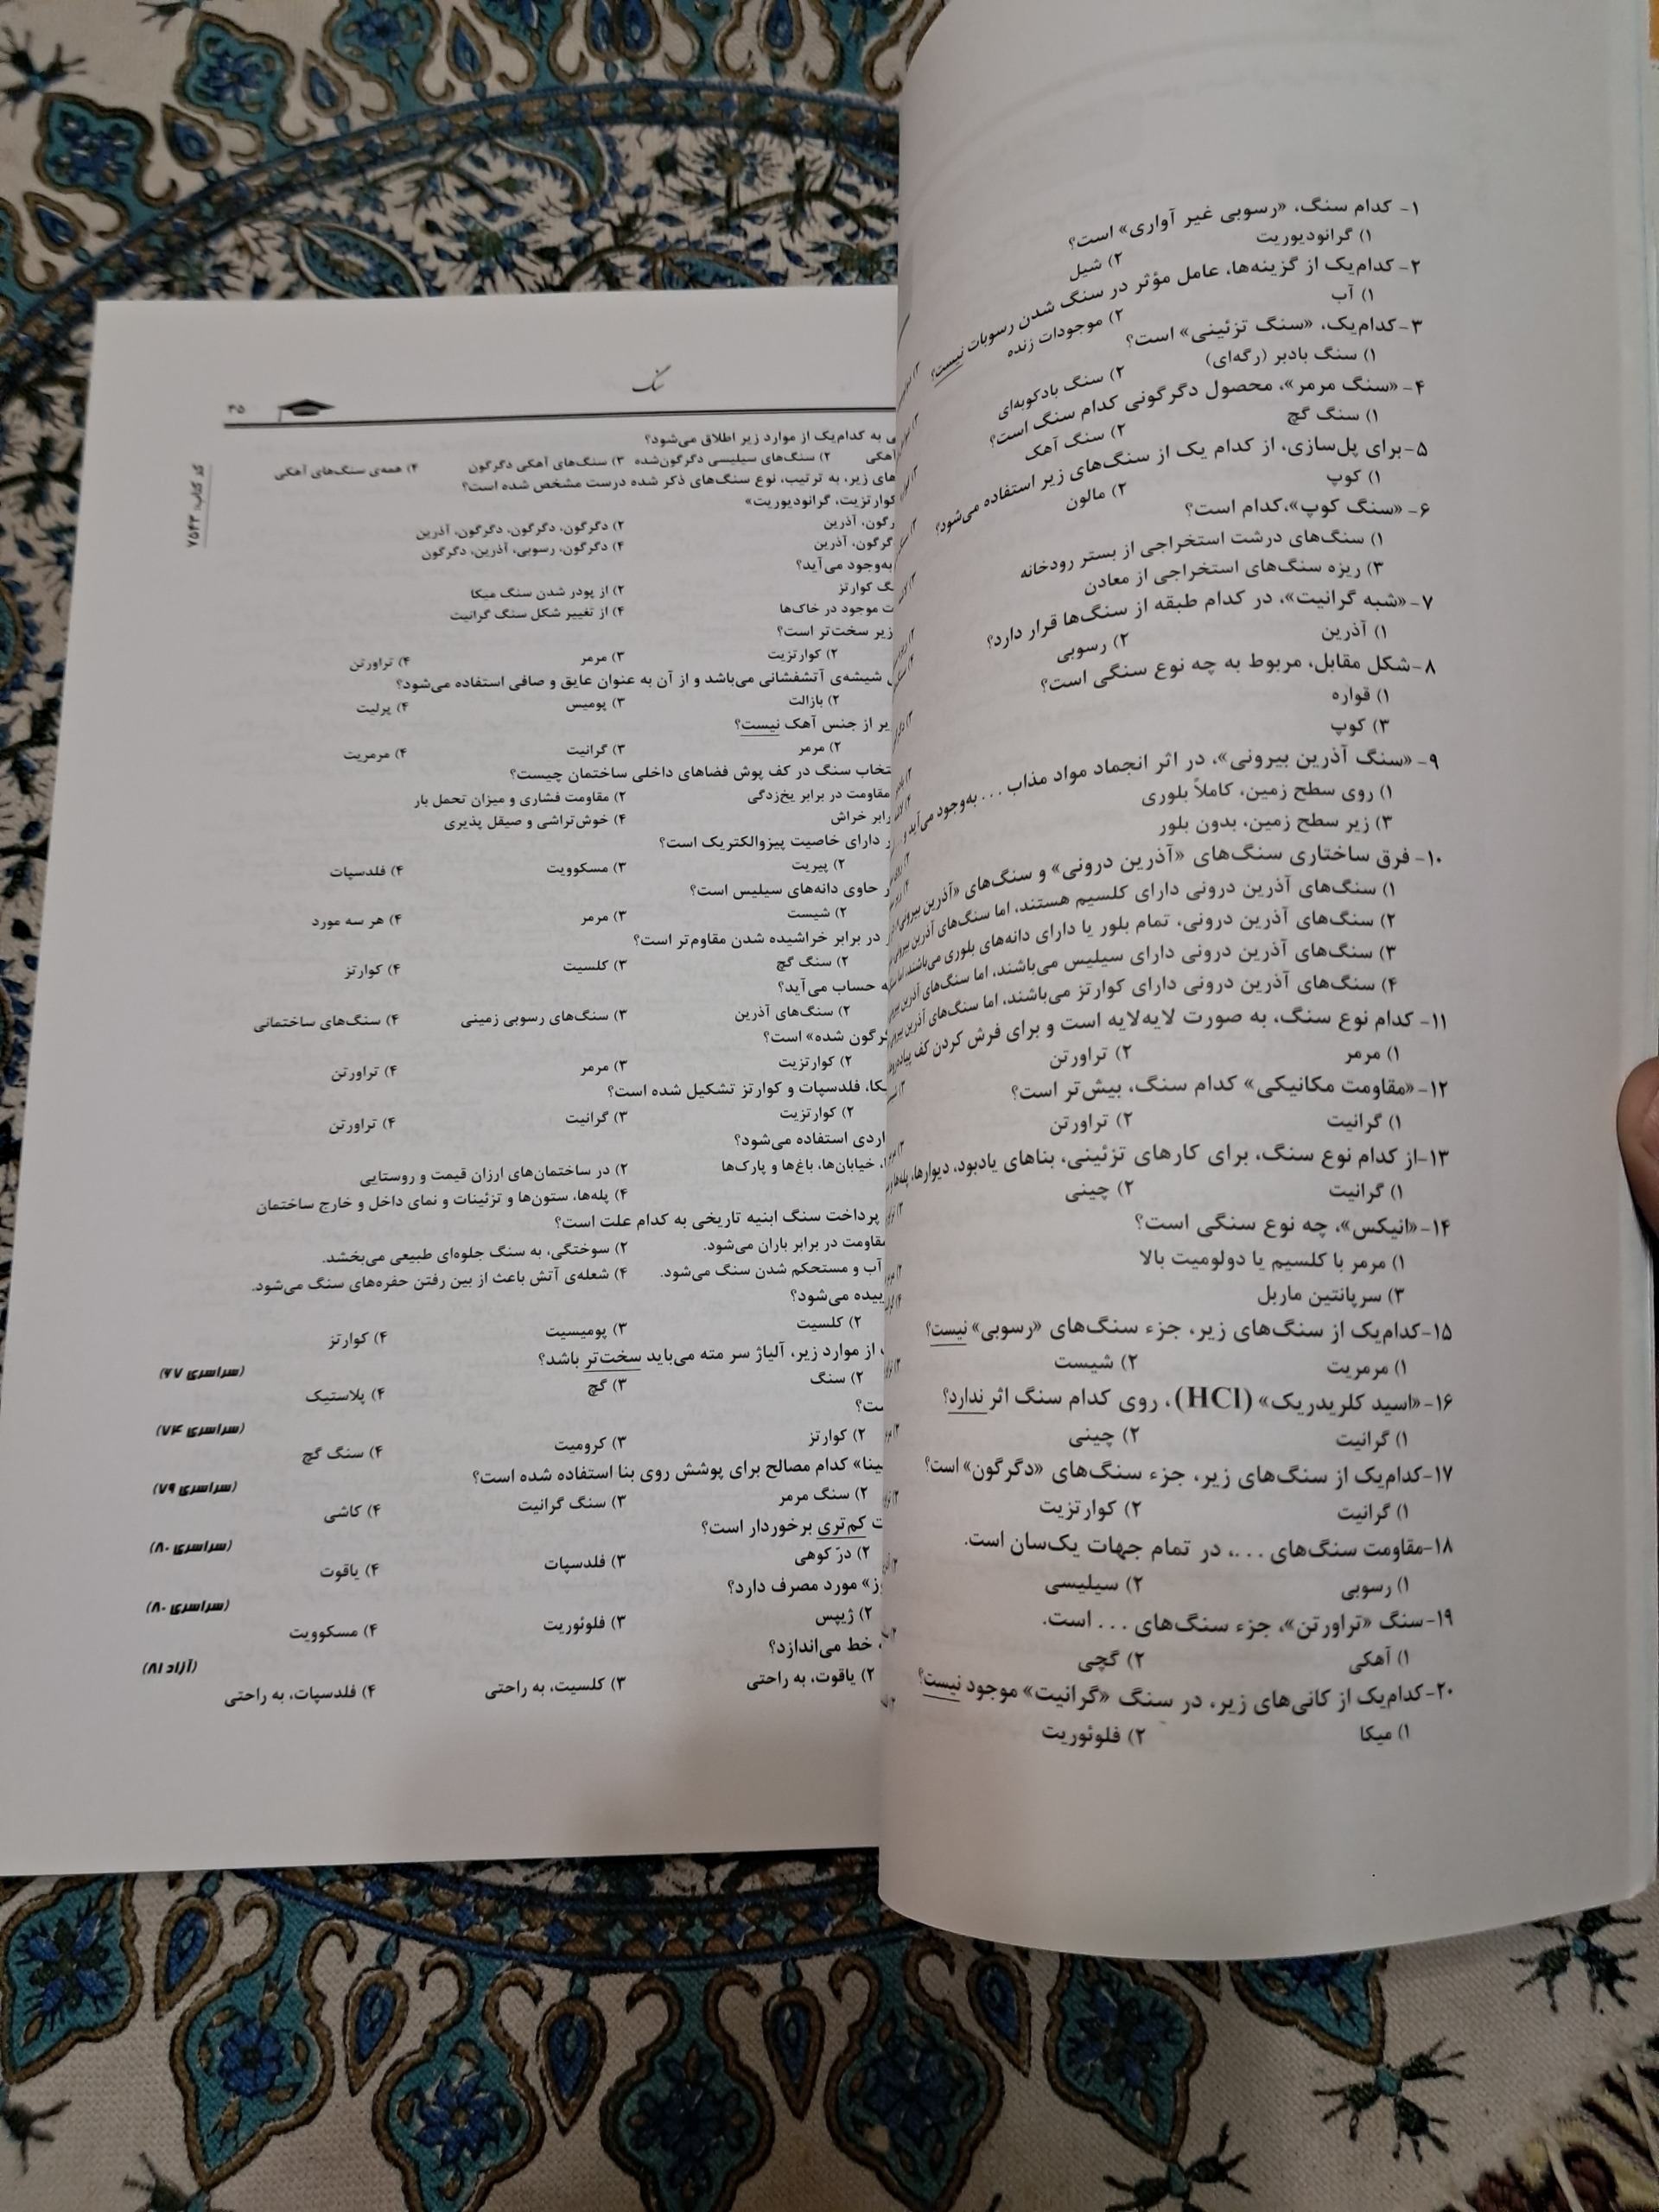 ۱- کدام سنگ، «رسوبی غیر آواری» است؟
۱) گرانودیوریت ۲) شیل
۲- کدام‌یک از گزینه‌ها، عامل مؤثر در سنگ شدن رسوبات نیست؟
۱) آب ۲) موجودات زنده
۳- کدام‌یک، «سنگ تزئینی» است؟
۱) سنگ بادبر (رگه‌ای) ۲) سنگ بادکوبه‌ای
۴- «سنگ مرمر»، محصول دگرگونی کدام سنگ است؟
۱) سنگ گچ ۲) سنگ آهک
۵- برای پل‌سازی، از کدام یک از سنگ‌های زیر استفاده می‌شود؟
۱) کوپ ۲) مالون
۶- «سنگ کوپ»، کدام است؟
۱) سنگ‌های درشت استخراجی از بستر رودخانه
۳) ریزه سنگ‌های استخراجی از معادن
۷- «شبه گرانیت»، در کدام طبقه از سنگ‌ها قرار دارد؟
۱) آذرین ۲) رسوبی
۸- شکل مقابل، مربوط به چه نوع سنگی است؟
۱) قواره
۳) کوپ
۹- «سنگ آذرین بیرونی»، در اثر انجماد مواد مذاب ... به‌وجود می‌آید و
۱) روی سطح زمین، کاملاً بلوری
۳) زیر سطح زمین، بدون بلور
۱۰- فرق ساختاری سنگ‌های «آذرین درونی» و سنگ‌های «آذرین بیرونی»
۱) سنگ‌های آذرین درونی دارای کلسیم هستند، اما سنگ‌های آذرین
۲) سنگ‌های آذرین درونی، تمام بلور یا دارای دانه‌های بلوری می‌باشند، اما
۳) سنگ‌های آذرین درونی دارای سیلیس می‌باشند، اما سنگ‌های آذرین
۴) سنگ‌های آذرین درونی دارای کوارتز می‌باشند، اما سنگ‌های آذرین
۱۱- کدام نوع سنگ، به صورت لایه‌لایه است و برای فرش کردن کف
۱) مرمر ۲) تراورتن
۱۲- «مقاومت مکانیکی» کدام سنگ، بیش‌تر است؟
۱) گرانیت ۲) تراورتن
۱۳- از کدام نوع سنگ، برای کارهای تزئینی، بناهای یادبود، دیوارها،
۱) گرانیت ۲) چینی
۱۴- «انیکس»، چه نوع سنگی است؟
۱) مرمر با کلسیم یا دولومیت بالا
۳) سرپانتین ماربل
۱۵- کدام‌یک از سنگ‌های زیر، جزء سنگ‌های «رسوبی» نیست؟
۱) مرمریت ۲) شیست
۱۶- «اسید کلریدریک» (HCl)، روی کدام سنگ اثر ندارد؟
۱) گرانیت ۲) چینی
۱۷- کدام‌یک از سنگ‌های زیر، جزء سنگ‌های «دگرگون» است؟
۱) گرانیت ۲) کوارتزیت
۱۸- مقاومت سنگ‌های ...، در تمام جهات یک‌سان است.
۱) رسوبی ۲) سیلیسی
۱۹- سنگ «تراورتن»، جزء سنگ‌های ... است.
۱) آهکی ۲) گچی
۲۰- کدام‌یک از کانی‌های زیر، در سنگ «گرانیت» موجود نیست؟
۱) میکا ۲) فلوئوریت
سنگ
۳۵
کد کتاب: ۷۵۴۳
به کدام‌یک از موارد زیر اطلاق می‌شود؟
آهکی ۲) سنگ‌های سیلیسی دگرگون‌شده ۳) سنگ‌های آهکی دگرگون ۴) همه‌ی سنگ‌های آهکی
های زیر، به ترتیب، نوع سنگ‌های ذکر شده درست مشخص شده است؟
کوارتزیت، گرانودیوریت»
گون، آذرین ۲) دگرگون، دگرگون، دگرگون، آذرین
گرگون، آذرین ۴) دگرگون، رسوبی، آذرین، دگرگون
به‌وجود می‌آید؟
گ کوارتز ۲) از پودر شدن سنگ میکا
ت موجود در خاک‌ها ۴) از تغییر شکل سنگ گرانیت
زیر سخت‌تر است؟
۲) کوارتزیت ۳) مرمر ۴) تراورتن
شیشه‌ی آتشفشانی می‌باشد و از آن به عنوان عایق و صافی استفاده می‌شود؟
۲) بازالت ۳) پومیس ۴) پرلیت
یر از جنس آهک نیست؟
۲) مرمر ۳) گرانیت ۴) مرمریت
تخاب سنگ در کف پوش فضاهای داخلی ساختمان چیست؟
مقاومت در برابر یخ‌زدگی ۲) مقاومت فشاری و میزان تحمل بار
رابر خراش ۴) خوش‌تراشی و صیقل پذیری
ر دارای خاصیت پیزوالکتریک است؟
۲) پیریت ۳) مسکوویت ۴) فلدسپات
ر حاوی دانه‌های سیلیس است؟
۲) شیست ۳) مرمر ۴) هر سه مورد
در برابر خراشیده شدن مقاوم‌تر است؟
۲) سنگ گچ ۳) کلسیت ۴) کوارتز
ه حساب می‌آید؟
۲) سنگ‌های آذرین ۳) سنگ‌های رسوبی زمینی ۴) سنگ‌های ساختمانی
گرگون شده» است؟
۲) کوارتزیت ۳) مرمر ۴) تراورتن
یکا، فلدسپات و کوارتز تشکیل شده است؟
۲) کوارتزیت ۳) گرانیت ۴) تراورتن
اردی استفاده می‌شود؟
، خیابان‌ها، باغ‌ها و پارک‌ها ۲) در ساختمان‌های ارزان قیمت و روستایی
۴) پله‌ها، ستون‌ها و تزئینات و نمای داخل و خارج ساختمان
پرداخت سنگ ابنیه تاریخی به کدام علت است؟
مقاومت در برابر باران می‌شود. ۲) سوختگی، به سنگ جلوه‌ای طبیعی می‌بخشد.
آب و مستحکم شدن سنگ می‌شود. ۴) شعله‌ی آتش باعث از بین رفتن حفره‌های سنگ می‌شود.
ییده می‌شود؟
۲) کلسیت ۳) پومیسیت ۴) کوارتز
از موارد زیر، آلیاژ سر مته می‌باید سخت‌تر باشد؟ (سراسری ۶۷)
۲) سنگ ۳) گچ ۴) پلاستیک
ست؟ (سراسری ۷۴)
۲) کوارتز ۳) کرومیت ۴) سنگ گچ
سینا» کدام مصالح برای پوشش روی بنا استفاده شده است؟ (سراسری ۷۹)
۲) سنگ مرمر ۳) سنگ گرانیت ۴) کاشی
ت کم‌تری برخوردار است؟ (سراسری ۸۰)
۲) درّ کوهی ۳) فلدسپات ۴) یاقوت
وز» مورد مصرف دارد؟ (سراسری ۸۰)
۲) ژیپس ۳) فلوئوریت ۴) مسکوویت
خط می‌اندازد؟ (آزاد ۸۱)
۲) یاقوت، به راحتی ۳) کلسیت، به راحتی ۴) فلدسپات، به راحتی